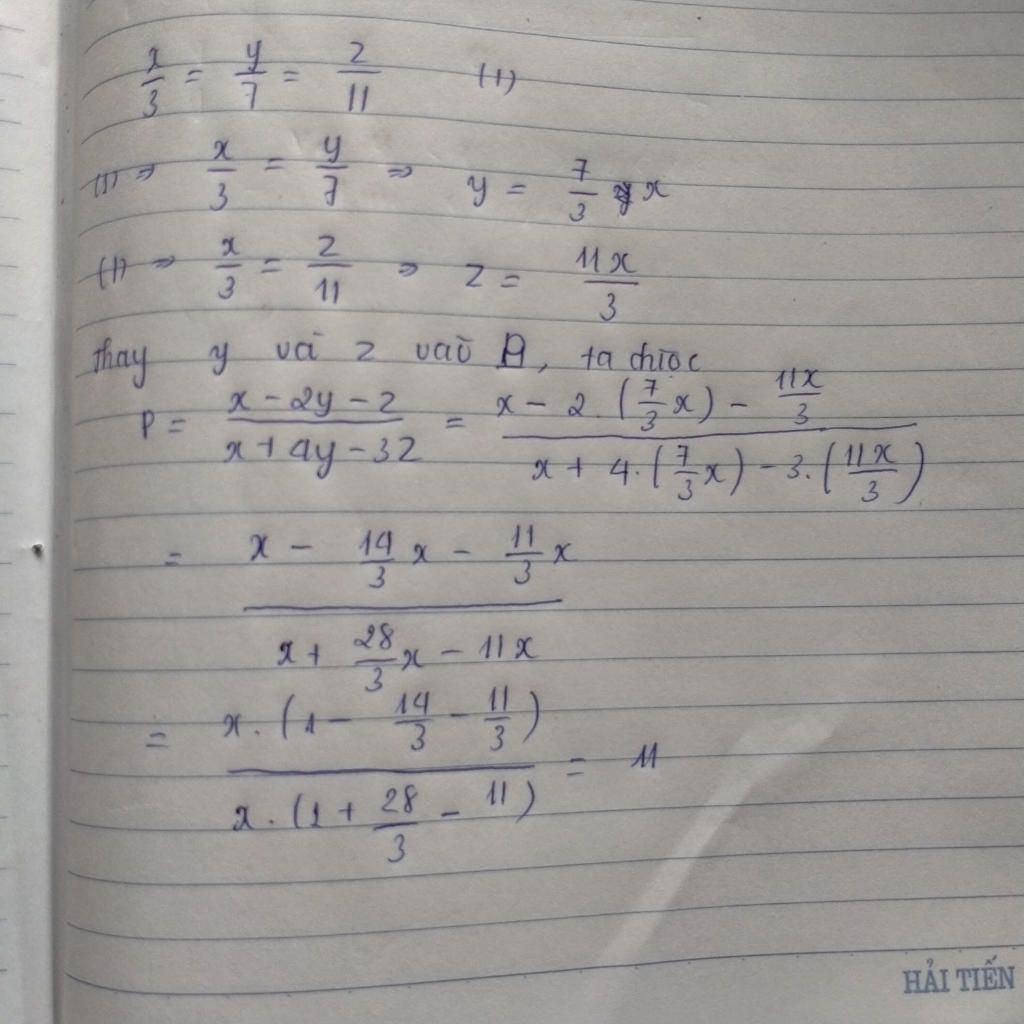 x/3 = y/7 = z/11 (1)
(1) ⇒ x/3 = y/7 ⇒ y = 7/3 x
(1) ⇒ x/3 = z/11 ⇒ z = 11x/3
thay y và z vào P, ta được
P = (x - 2y - z)/(x + 4y - 3z) = (x - 2.(7/3 x) - 11x/3)/(x + 4.(7/3 x) - 3.(11x/3))
= (x - 14/3 x - 11/3 x)/(x + 28/3 x - 11x)
= (x.(1 - 14/3 - 11/3))/(x.(1 + 28/3 - 11)) = 11
HẢI TIẾN